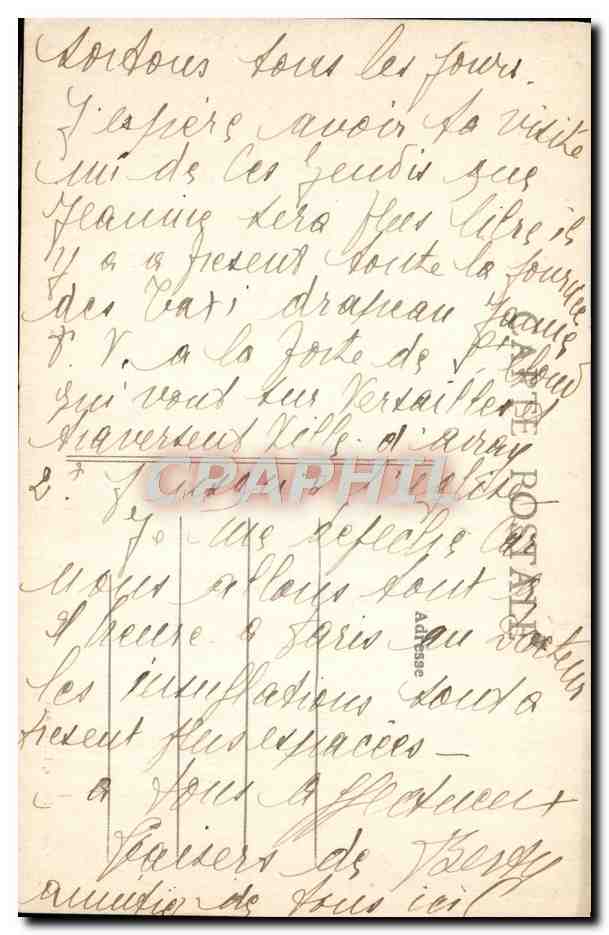 sortons tous les jours.
J'espère avoir ta visite
un de ces Jeudis que
Jeanine sera plus libre il
y a a present toute la journée
des Taxi drapeau Jaune
T. V. a la Porte de St Cloud
qui vont sur Versailles
traversent Ville d'avray
2f Jusqu'a l'église
Je me depeche car
nous allons tout a
l'heure a Paris au docteur
les insuflations sont a
present plus espacées —
a tous affectueux
Baisers de Berthe
amitiés de tous ici
CARTE POSTALE
Adresse
CPAPHIL